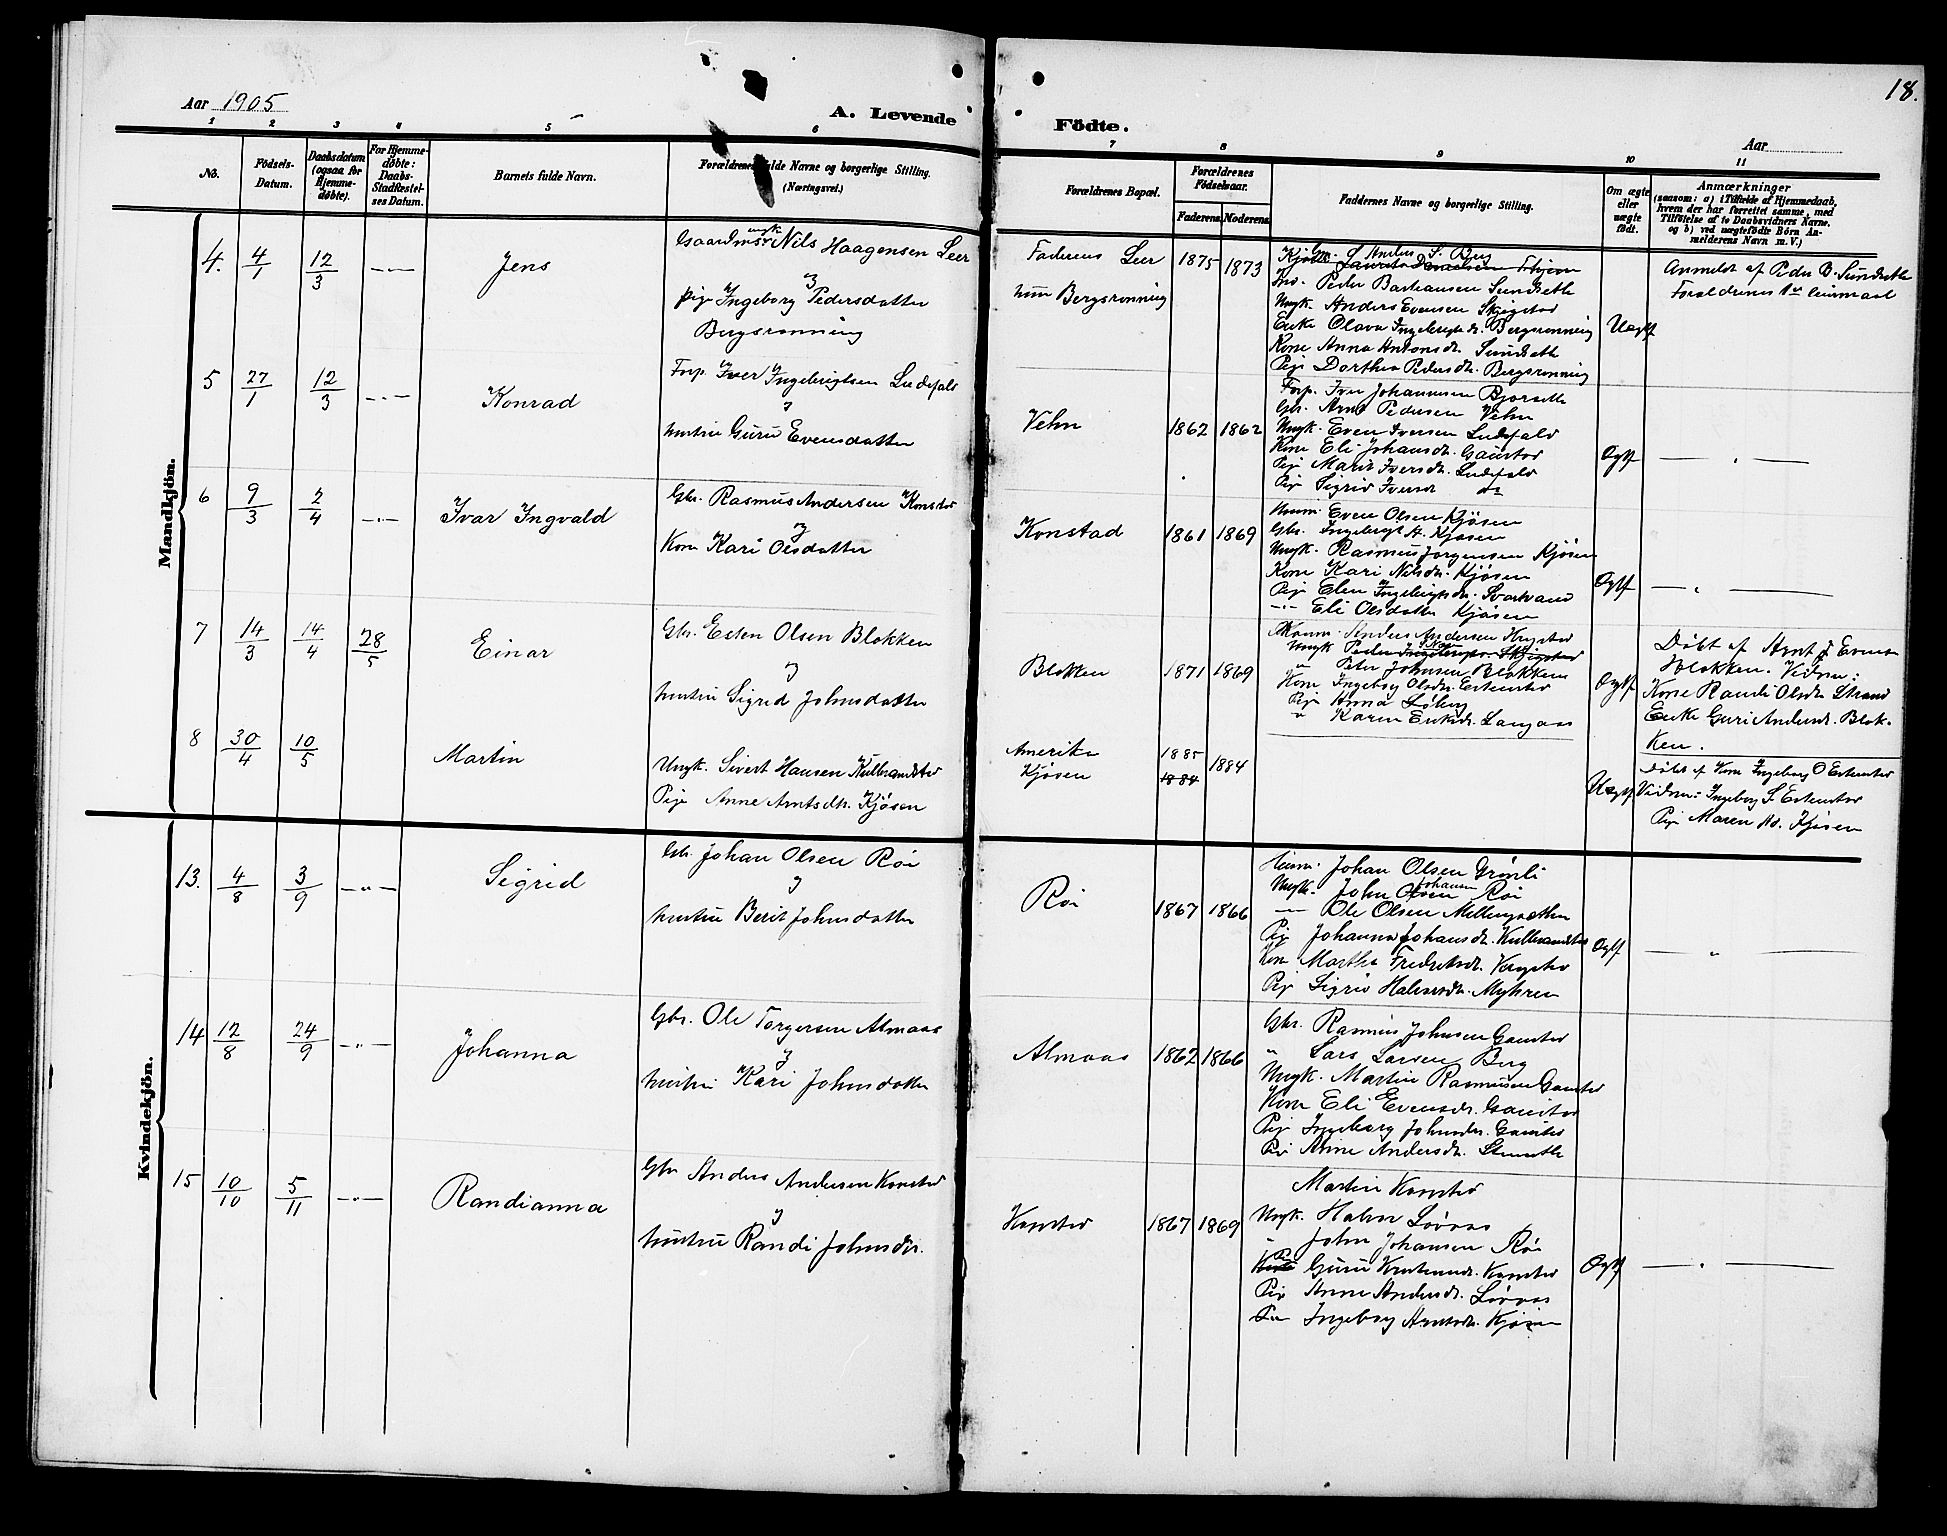 18.
Aar 1905
A. Levende Födte.
Aar
1 2 3 4 5 6 7 8 9 10 11
No.
Födsels-Datum.
Daabsdatum (ogsaa for Hjemmedöbte).
For Hjemmedöbte: Daabs-Stadfæstelses Datum.
Barnets fulde Navn.
Forældrenes fulde Navne og borgerlige Stilling. (Næringsvei.)
Forældrenes Bopæl.
Forældrenes Födselsaar.
Faderens. Moderens.
Faddernes Navne og borgerlige Stilling.
Om ægte eller uægte födt.
Anmærkninger
(saasom: a) i Tilfælde af Hjemmedaab, hvem der har forrettet samme, med Tilföielse af to Daabsvidners Navne, og b) ved uægtefödte Börn Anmelderens Navn m. V.)
Mandkjön.
4. 4/1 12/3 —"— Jens
Gaardmbr ungk Nils Haagensen Leer
&
pige Ingeborg Pedersdatter
Bergsrønning
Faderens Leer
hun Bergsrønning
1875 1873
Gbr. Anders S. Berg
Ino. Peder Bashausen Sundseth
Ungk. Anders Evensen Skjegstad
Enke Olava Ingebrigtsd. Bergsrønning
Kone Anna Antonsdr. Sundseth
Pige Dorthea Pedersdr. Bergsrønning
Uægte
Anmeldt af Peder B. Sundseth
Forældrenes 1ste leiermaal
5 27/1 12/3 —"— Konrad
Forp. Iver Ingebrigtsen Ludsfald
&
hustru Guru Evensdatter
Vehn
1862 1862
Forp. Iver Johannesen Bjørseth
Gbr. Arnt Pedersen Vehn
Ungk. Even Iversen Ludsfald
Kone Eli Johansdr. Gaustad
Pige Marit Iversdr. Ludsfald
Pige Sigrid Iversdr do
Ægte
— " —
6 9/3 2/4 —"— Ivar Ingvald
Gbr. Rasmus Andersen Konstad
&
Kone Kari Olsdatter
Konstad
1861 1869
Huusm. Even Olsen Kjøsen
Gbr. Ingebrigt A. Kjøsen
Ungk. Rasmus Jørgensen Kjøsen
Kone Kari Nilsdr. Kjøsen
Pige Elen Ingebrigtsdr. Svartvand
—"— Eli Olsdatter Kjøsen
Ægte
— " —
7 14/3 14/4 28/5 Einar
Gbr. Esten Olsen Blokken
&
hustru Sigrid Johnsdatter
Blokken
1871 1869
Anders Andersen
Ungk Peder
" Peter Johnsen Blokken
Kone Ingeborg Olsdr. Estenstad
Pige Anna Løberg
" Karen Eriksdr. Langaas
Ægte
Døbt af Arnt J Evensen
Blokken. Vidner:
Kone Randi Olsdtr Strand
Enke Guri Andersdr. Blokken.
8 30/4 10/5 Martin
Ungk. Sivert Hansen Kulbrandstad
Pige Anne Arntsdr. Kjøsen
Amerika
Kjøsen
1885
1884 1884
Uægte
Døbt af Kone Ingeborg O Estenstad
Vidner: Ingeborg S. Estenstad
Pige Maren As. Kjøsen
Kvindekjön.
13. 4/8 3/9 —"— Sigrid
Gbr. Johan Olsen Røi
&
hustru Berit Johnsdatter
Røi
1867 1866
Huusm. Johan Olsen Grønli
Ungk. John Johansen Røi
—"— Ole Olsen Mellingsæther
Pige Johanna Johansdr. Kulbrandstad
Kone Martha Fredriksdr. Kregstad
Pige Sigrid Halvorsdr. Myhren
Ægte
— " —
14 12/8 24/9 —"— Johanna
Gbr. Ole Torgersen Almaas
&
hustru Kari Johnsdatter
Almaas
1862 1866
Gbr. Rasmus Johnsen Gaustad
" Lars Larsen Berg
Ungk. Martin Rasmussen Gaustad
Kone Eli Evensdr. Gaustad
Pige Ingeborg Johnsdr. Gaustad
Pige Anne Andersdr.
15 10/10 5/11 —"— Randianna
Gbr Anders Andersen Konstad
&
hustru Randi Johnsdr.
Konstad
1867 1869
Martin Konstad
Ungk. Halvor Løvaas
" John Johansen Røi
Pi Guru Kristensdr. Konstad
Pige Anne Andersdr. Løvaas
Pige Ingeborg Arntsdr. Kjøsen
Ægte
— " —